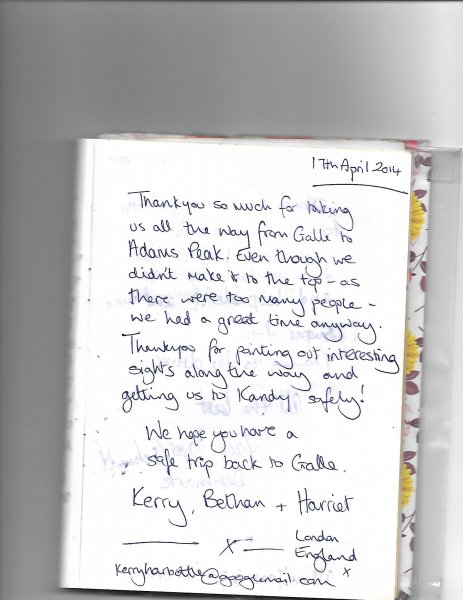 17th April 2014
Thankyou so much for taking
us all the way from Galle to
Adams Peak. Even though we
didn't make it to the top - as
there were too many people -
we had a great time anyway.
Thankyou for pointing out interesting
sights along the way and
getting us to Kandy safely!
We hope you have a
safe trip back to Galle.
Kerry, Bethan + Harriet
x
London
England
x
kerryharbottle@googlemail.com